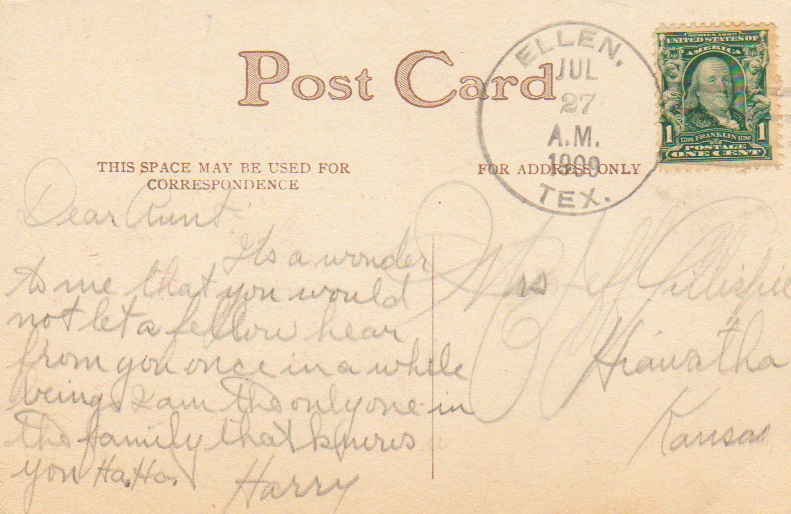 Post Card
ELLEN,
JUL
27
A.M.
1909
TEX.
SERIES 1902
UNITED STATES OF
AMERICA
1706 FRANKLIN 1790
1 1
POSTAGE
ONE CENT
THIS SPACE MAY BE USED FOR
CORRESPONDENCE
FOR ADDRESS ONLY
Dear Aunt:
Its a wonder
to me that you would
not let a fellow hear
from you once in a while
beings I am the only one in
the family that knows
you Ha. Ha.
Harry
Mrs Gillispie
Hiawatha
Kansas